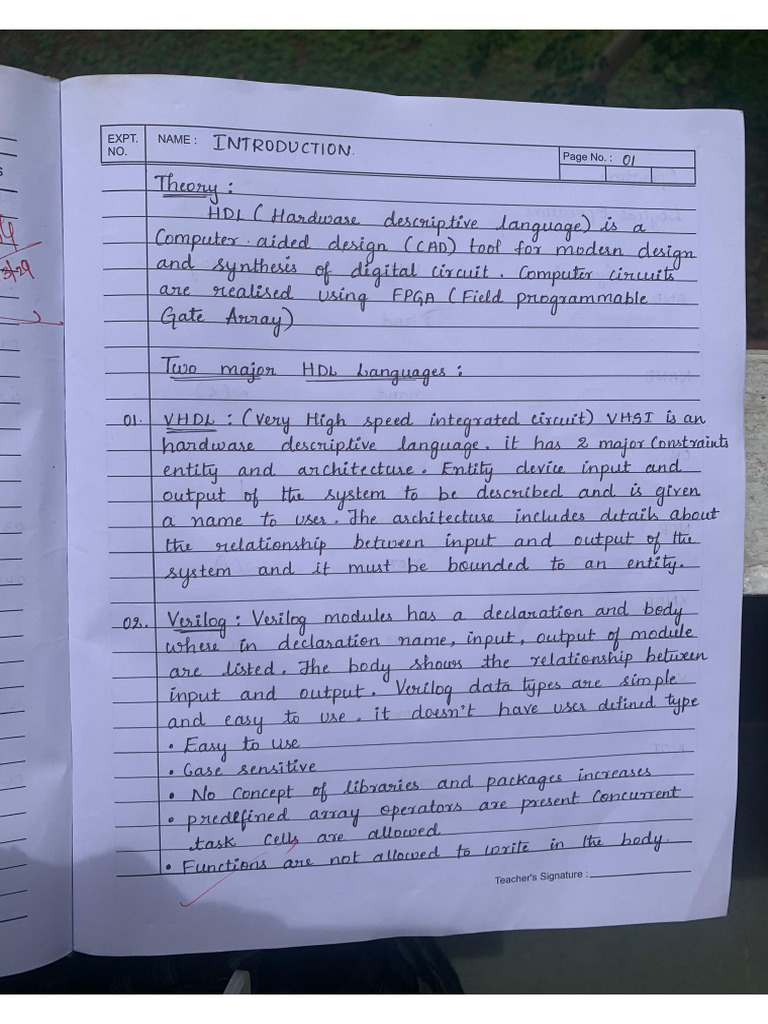 EXPT. NO.
NAME : INTRODUCTION.
Page No. : 01
Theory :
HDL (Hardware descriptive language) is a
Computer aided design (CAD) tool for modern design
and synthesis of digital circuit. Computer circuits
are realised using FPGA (Field programmable
Gate Array)
Two major HDL Languages :
01. VHDL : (Very High speed integrated circuit) VHSI is an
hardware descriptive language. it has 2 major Constraints
entity and architecture. Entity device input and
output of the system to be described and is given
a name to user. The architecture includes details about
the relationship between input and output of the
system and it must be bounded to an entity.
02. Verilog : Verilog modules has a declaration and body
where in declaration name, input, output of module
are listed. The body shows the relationship between
input and output. Verilog data types are simple
and easy to use. it doesn't have user defined type
• Easy to use
• Case sensitive
• No Concept of libraries and packages increases
• predefined array operators are present Concurrent
task Cells are allowed
• Functions are not allowed to write in the body.
Teacher's Signature :